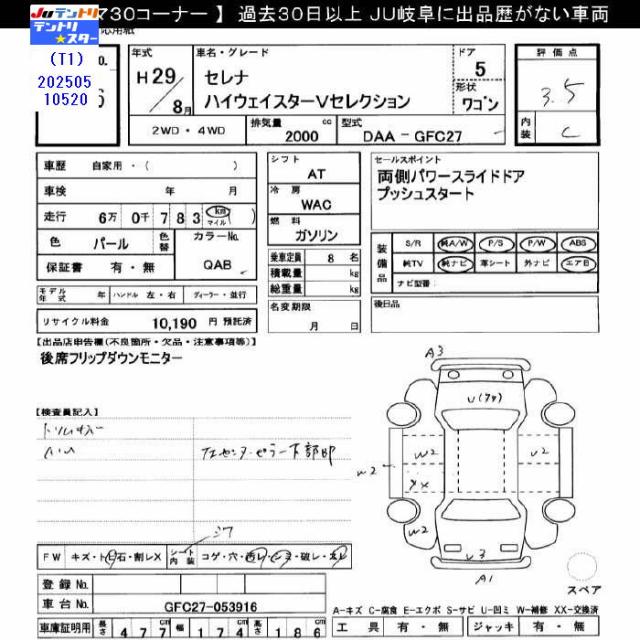 JUテントリ マ30コーナー 】 過去30日以上 JU岐阜に出品歴がない車両
テントリ★スター
(T1)
202505
10520
o.
6
応用紙
年式
H29/8月
車名・グレード
セレナ
ハイウェイスターVセレクション
ドア
5
形状
ワゴン
評価点
3.5
内装
C
2WD・4WD
排気量 2000 cc
型式 DAA-GFC27
車歴 自家用・( )
車検 年 月
走行 6万 0千 7 8 3 (km マイル)
色 パール 色替 カラーNo. QAB
保証書 有・無
モデル年式 年 ハンドル 左・右 ディーラー・並行
リサイクル料金 10,190 円 預託済
シフト
AT
冷房
WAC
燃料
ガソリン
乗車定員 8 名
積載量 kg
総重量 kg
名変期限
月 日
セールスポイント
両側パワースライドドア
プッシュスタート
装備品
S/R 純A/W P/S P/W ABS
純TV 純ナビ 革シート 外ナビ エアB
ナビ型番:
後日品
【出品店申告欄(不良箇所・欠品・注意事項等)】
後席フリップダウンモニター
【検査員記入】
A3
U(アク)
W2
W2
W2
XX
W2
U3
A1
シワ
FW キズ・トビ石・割レX シート内装 コゲ・穴・汚レ・シミ・破レ・スレ
登録No.
車台No. GFC27-053916
車庫証明用 長さ 477 幅 174 高さ 186
スペア
A-キズ C-腐食 E-エクボ S-サビ U-凹ミ W-補修 XX-交換済
工具 有・無 ジャッキ 有・無